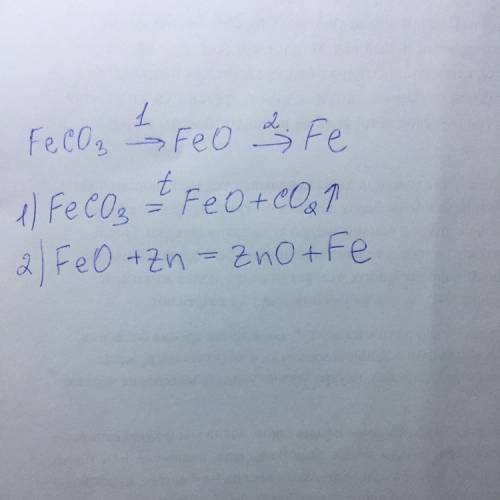 FeCO₃ →¹ FeO →² Fe
1) FeCO₃ =ᵗ FeO + CO₂↑
2) FeO + Zn = ZnO + Fe